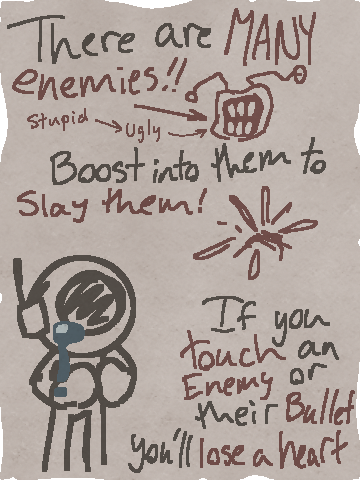 There are MANY
enemies!!
Stupid
Ugly
Boost into them to
Slay them!
If you
touch an
Enemy or
their Bullet
you'll lose a heart